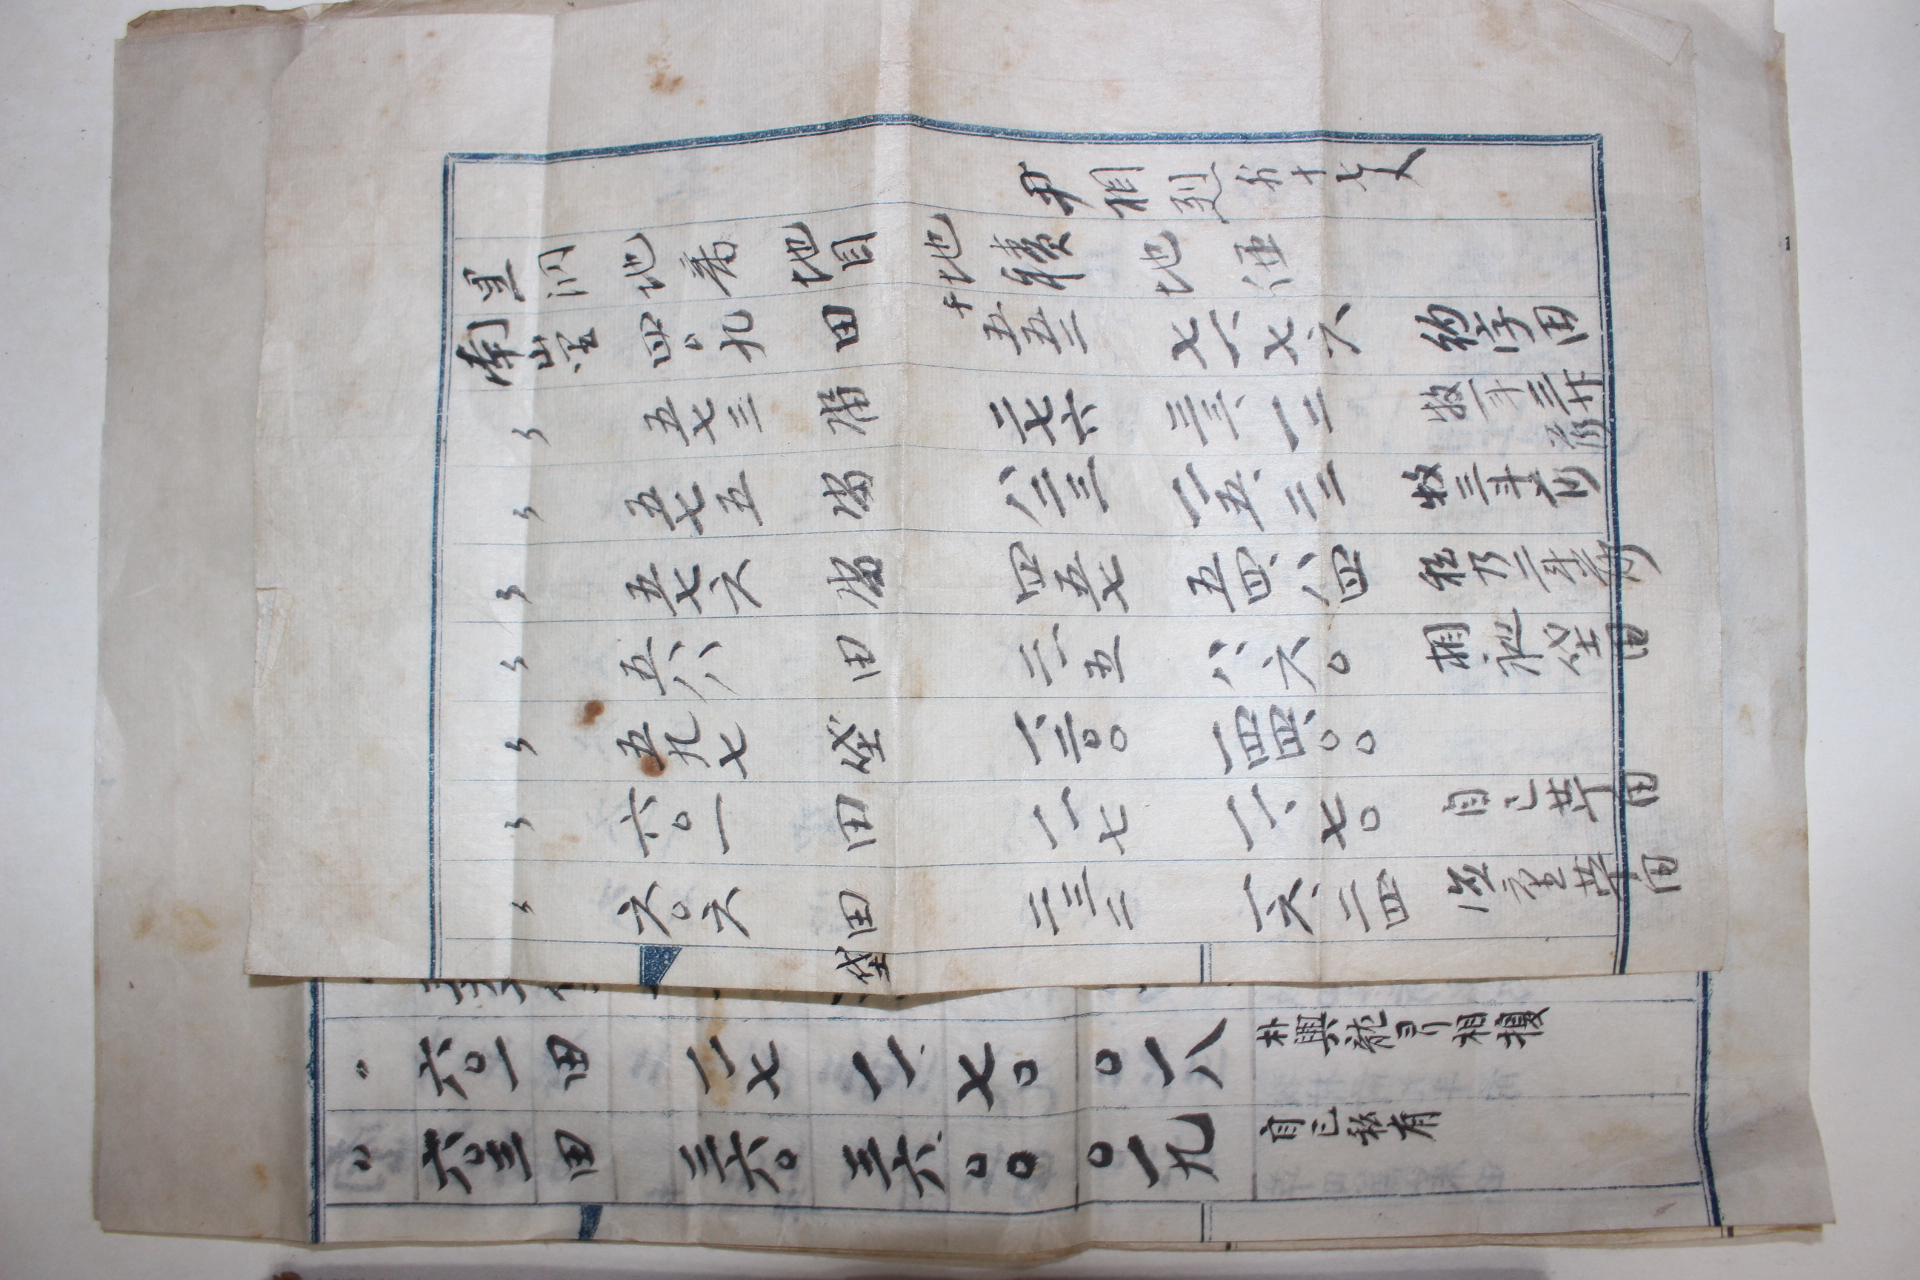 尹相烈外十七人
里洞 地番 地目 地積 地価
南山里 四〇九 田 千五五二 七一、七六
〃 五七三 畓 二七六 三三、一二
〃 五七五 畓 八二三 牧三斗
〃 五七六 畓 四五七 五四、八四
〃 五八八 田 二一五 八、六〇 垈田
〃 五九七 垈 一、二〇〇 一四四、〇〇
〃 六〇一 田 一一七 一一、七〇 自己 田
〃 六〇六 田 二三二 一六、二四 田
垈
〃 六〇一 田 一一七 一一、七〇 〇一八 朴興龍ヨリ相
〃 六〇三 田 三六〇 三六、〇〇 〇一九 自己私有